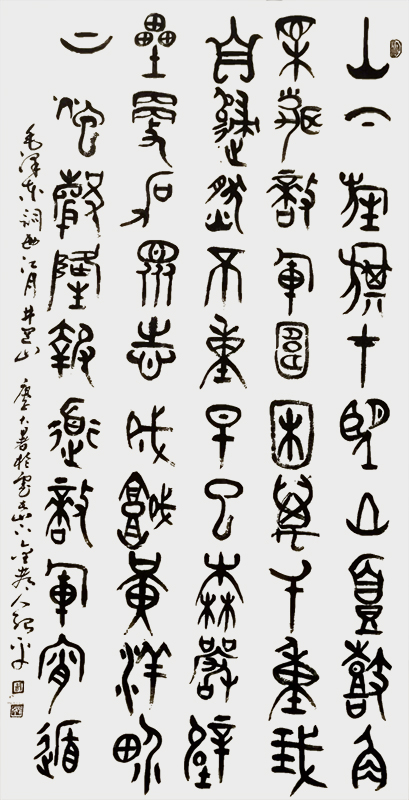 山下旌旗在望山頭鼓角
相聞敵軍圍困萬千重我
自巋然不動早已森嚴壁
壘更加眾志成城黃洋界
上炮聲隆報道敵軍宵遁
毛澤東詞西江月井岡山 大暑於老人